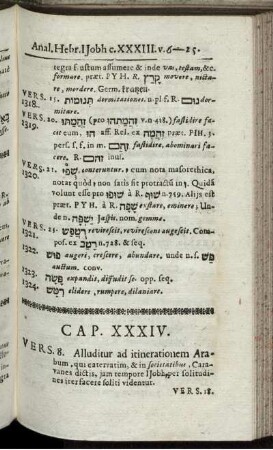 Anal. Hebr. IJobh c. XXXIII. v. 6—25.
tegra frustum assumere & inde vas, testam, &c.
formare. præt. PYH. R. קרץ movere, nictare,
mordere. Germ. kratzen.
VERS. 15. תנומות dormitationes. n. pl. f. R. נום dormitare.
1318.
VERS. 20. זהמתו (pro זהמתהו v. n. 418.) fastidire facit
1319.
eum, הו aff. Rel. ex זהמת præt. PIH. 3.
pers. s. f. in m. זהם fastidire, abominari facere.
R. זהם inus.
VERS. 21. שפי conteruntur, cum nota masorethica,
1320.
notat quòd, non satis sit protractâ in. Quidã
volunt esse pro שופו à R. שוף n. 759. Alijs deducitur
à R. שפה exstare, eminere; Unde
n. ישפה Jaspis. nom. gemmæ.
VERS. 25. רטפש revirescit, revirescens augescit. Compos.
1321.
ex רטב n. 728. & seq.
1322. פוש augeri, crescere, abundare, unde n. s. פש
auctum. conv.
1323. פשה expandi, diffudit se. opp. seq.
1324. רטש elidere, rumpere, dilaniare.
CAP. XXXIV.
VERS. 8. Alluditur ad itinerationem Arabum,
qui catervatim, & in societatibus, Caravanes
dictis, jam tempore IJobh, per solitudines
iter facere soliti videntur.
VERS. 18.